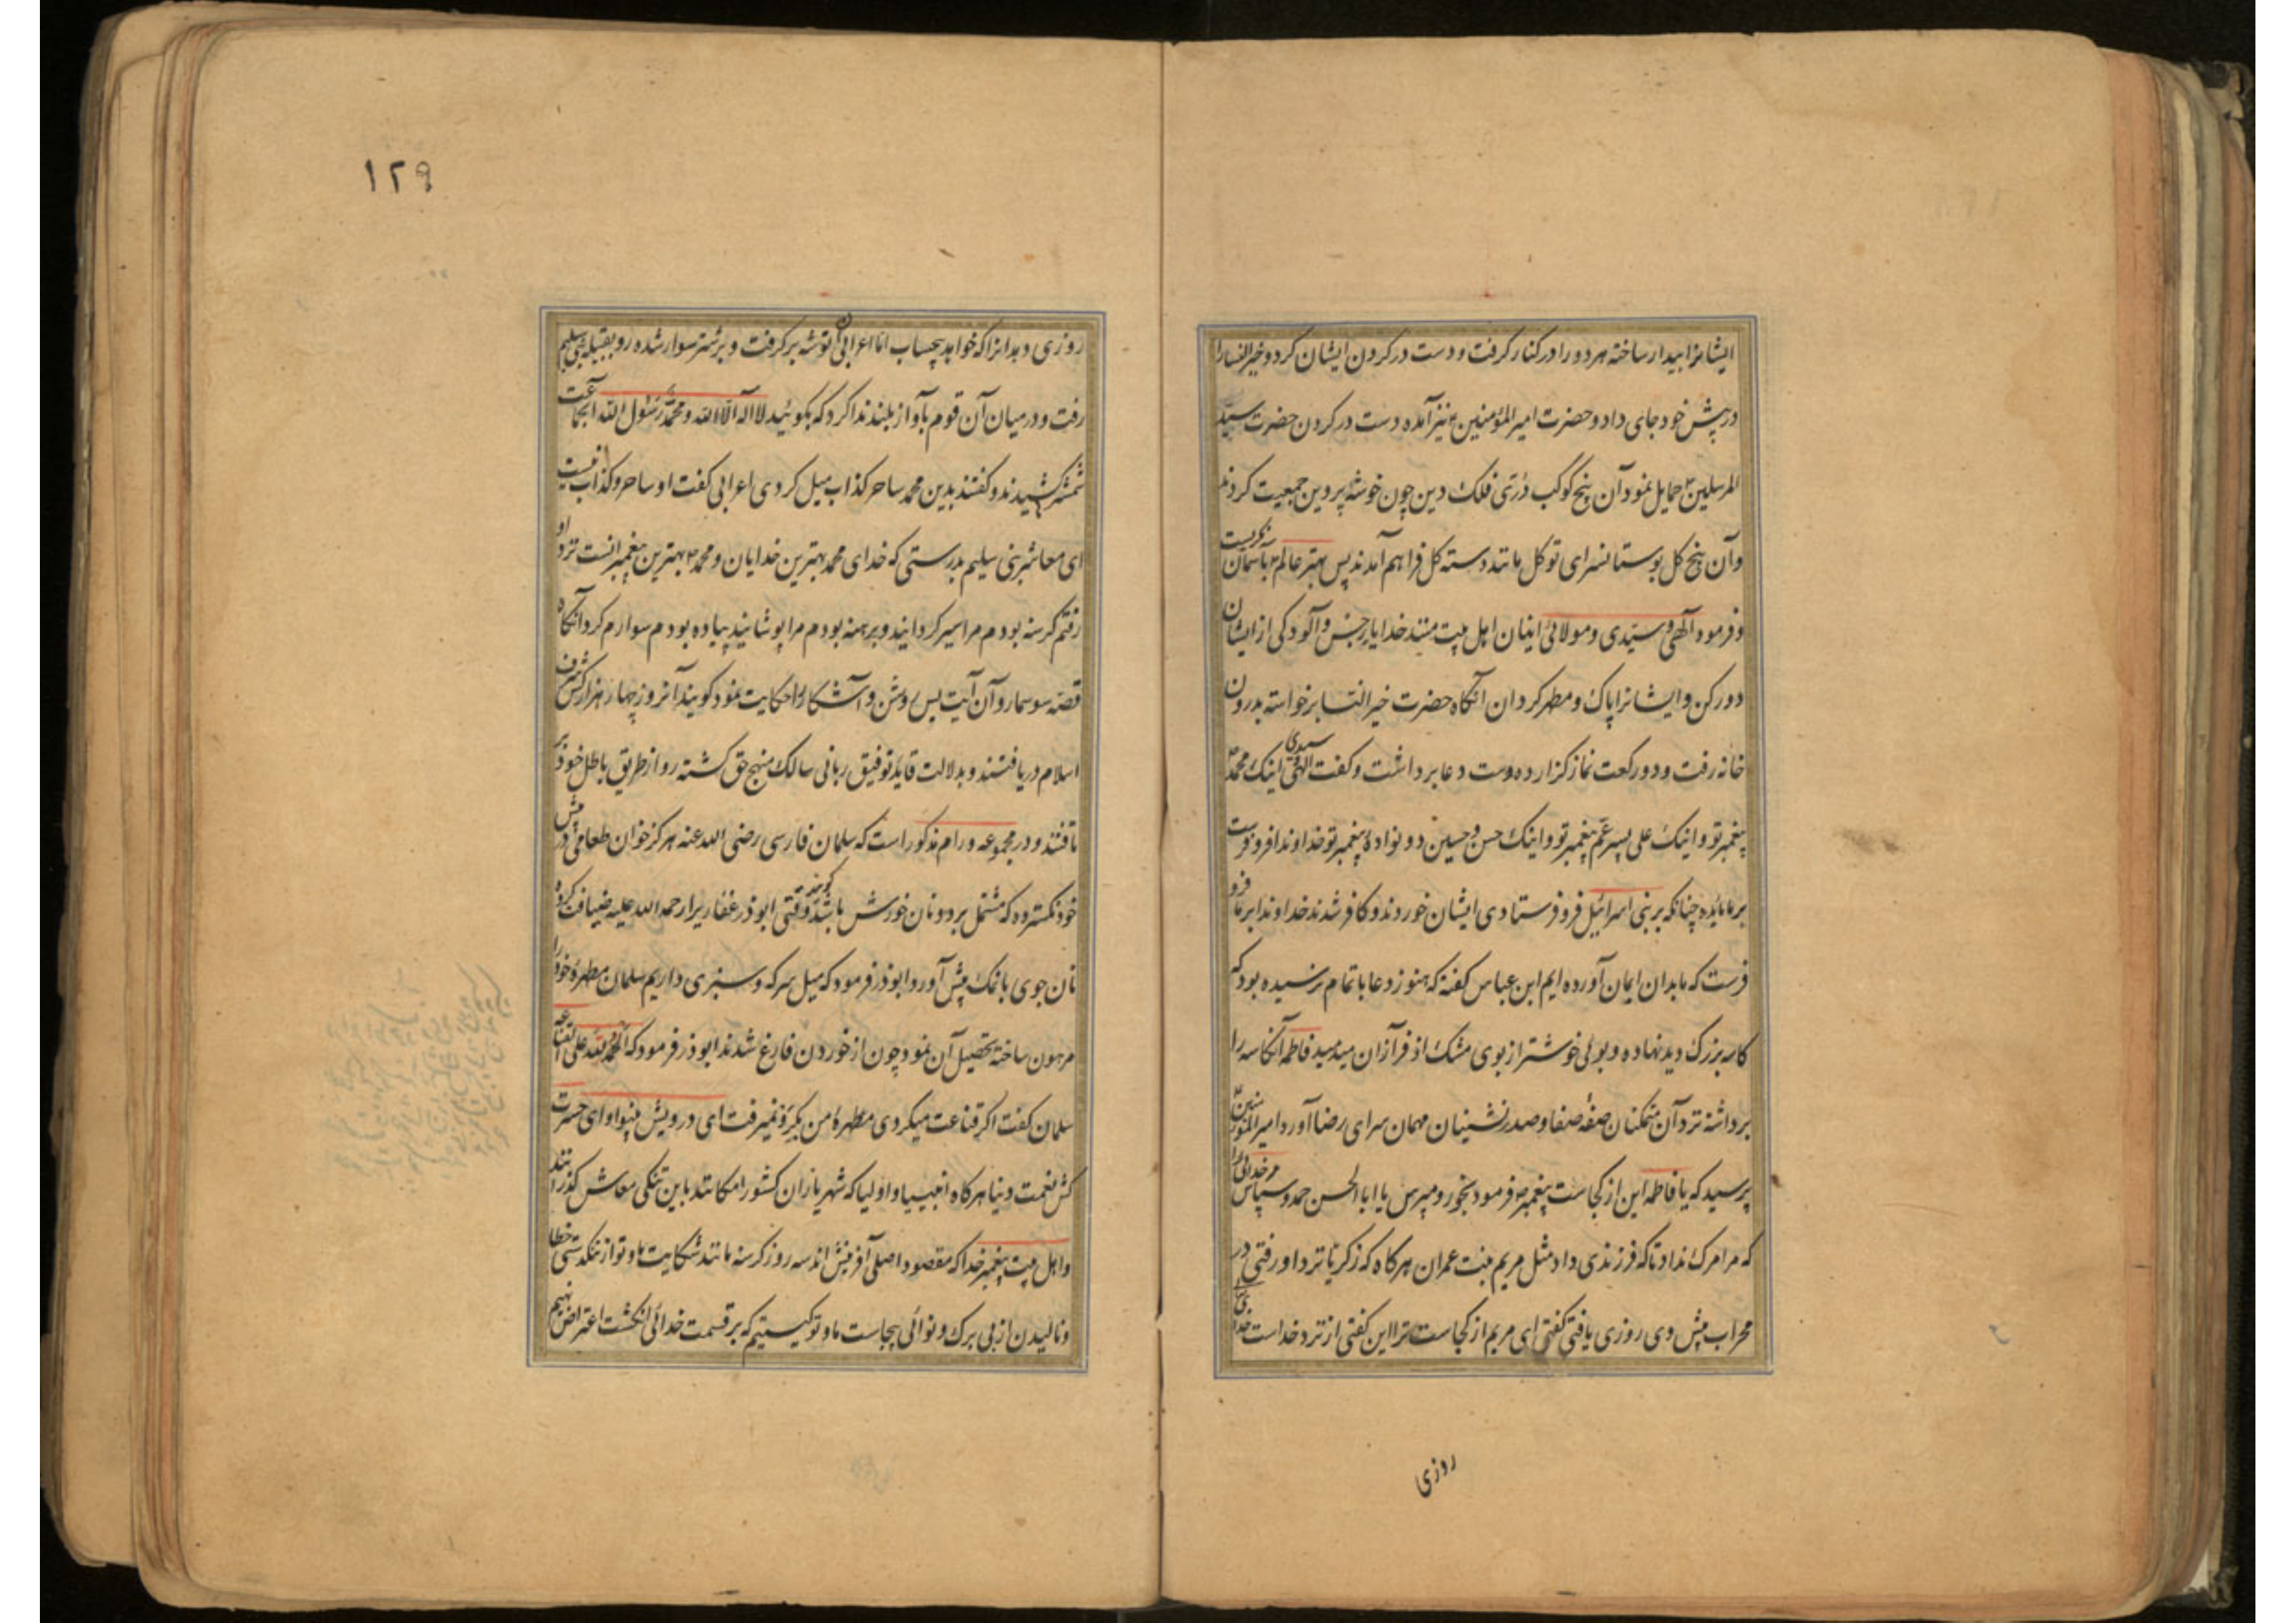 ایشانرا بیدار ساخته هر دو را در کنار گرفت و دست در گردن ایشان کرد و خیر النسا را
در پیش خود جای داد و حضرت امیر المؤمنین نیز آمده دست در گردن حضرت سید
المرسلین حمایل نمود آن پنج کوکب درّی فلک دین چون خوشه پروین جمعیت کردند
و آن پنج کل بوستانسرای توکل مانند دسته کل فراهم آمدند پس بهتر عالم باسمان نکریست
و فرمود آلهی و سیّدی و مولائی اینان اهل بیت منند خدایا رجس و آلودکی از ایشان
دور کن و ایشانرا پاک و مطهر کردان آنکاه حضرت خیر النسا برخواسته بدرون
خانه رفت و دو رکعت نماز کزارده دست دعا برداشت و کفت الهی سیدی اینک محمد
پیغمبر تو و اینک علی پسر عم پیغمبر تو و اینک حسن و حسین دو نواده پیغمبر تو خداوندا فرو فرست
بر ما مائده چنانکه بر بنی اسرائیل فرو فرستادی ایشان خوردند و کافر شدند خداوندا بر ما فرو
فرست که ما بدان ایمان آورده ایم ابن عباس کفته که هنوز دعا باتمام نرسیده بود که
کاسه بزرک دید نهاده و بوئی خوشتر از بوی مشک اذفر از ان میدمید فاطمه آنکاسه را
برداشته نزد آن متمکنان صفه صفا و صدر نشینان مهمان سرای رضا آورد امیر المؤمنین
پرسید که یا فاطمه این از کجاست پیغمبر فرمود بخور و مپرس یا ابا الحسن حمد و سپاس مر خدائی را
که مرا مرک نداد تا که فرزندی داد مثل مریم بنت عمران هر کاه که زکریا نزد او رفتی در
محراب پیش وی روزی یافتی کفتی ای مریم از کجاست ترا این کفتی از نزد خداست خدای
روزی
١٢٩
روزی دهد انرا که خواهد بیحساب اما اعرابی آن توشه بر کرفت و بر شتر سوار شده رو بقبیله بنی سلیم
رفت و در میان آن قوم بآواز بلند ندا کرد که بکوئید لا اله الا الله و محمد رسول الله آنجماعت
شمشیر کشیدند و کفتند بدین محمد ساحر کذاب میل کردی اعرابی کفت او ساحر و کذاب نیست
ای معاشر بنی سلیم بدرستی که خدای محمد بهترین خدایان و محمد بهترین پیغمبرانست نزد او
رفتم کرسنه بودم مرا سیر کردانید و برهنه بودم مرا پوشانید پیاده بودم سوارم کرد آنکاه
قصه سوسمار و آن آیت بس روشن و آشکارا حکایت نمود کویند آنروز چهار هزار کس شرف
اسلام دریافتند و بدلالت قاید توفیق ربانی سالک منهج حق کشته رو از طریق باطل خود بر
تافتند و در مجموعه ورام مذکور است که سلمان فارسی رضی الله عنه هرکز خوان طعامی در پیش
خود نکسترده که مشتمل بر دو نان خورش باشد کویند وقتی ابوذر غفاریرا رحمه الله علیه ضیافت کرده
نان جوی با نمک پیش آورد ابوذر فرمود که میل سرکه و سبزی داریم سلمان مطهره خود را
مرهون ساخته تحصیل آن نمود چون از خوردن فارغ شدند ابوذر فرمود که الحمد لله علی القناعه
سلمان کفت اکر قناعت میکردی مطهره من بکرو نمیرفت ای درویش بینوا و ای حسرت
کش نعمت دنیا هر کاه انبیا و اولیا که شهریاران کشور امکانند باین تنکی معاش کذرانند
و اهل بیت پیغمبر خدا که مقصود اصلی آفرینش اند سه روز کرسنه مانند شکایت ما و تو از تنکدستی خطا
و نالیدن از بی برک و نوائی بیجاست ما و تو کیستیم که بر قسمت خدائی انکشت اعتراض نهیم